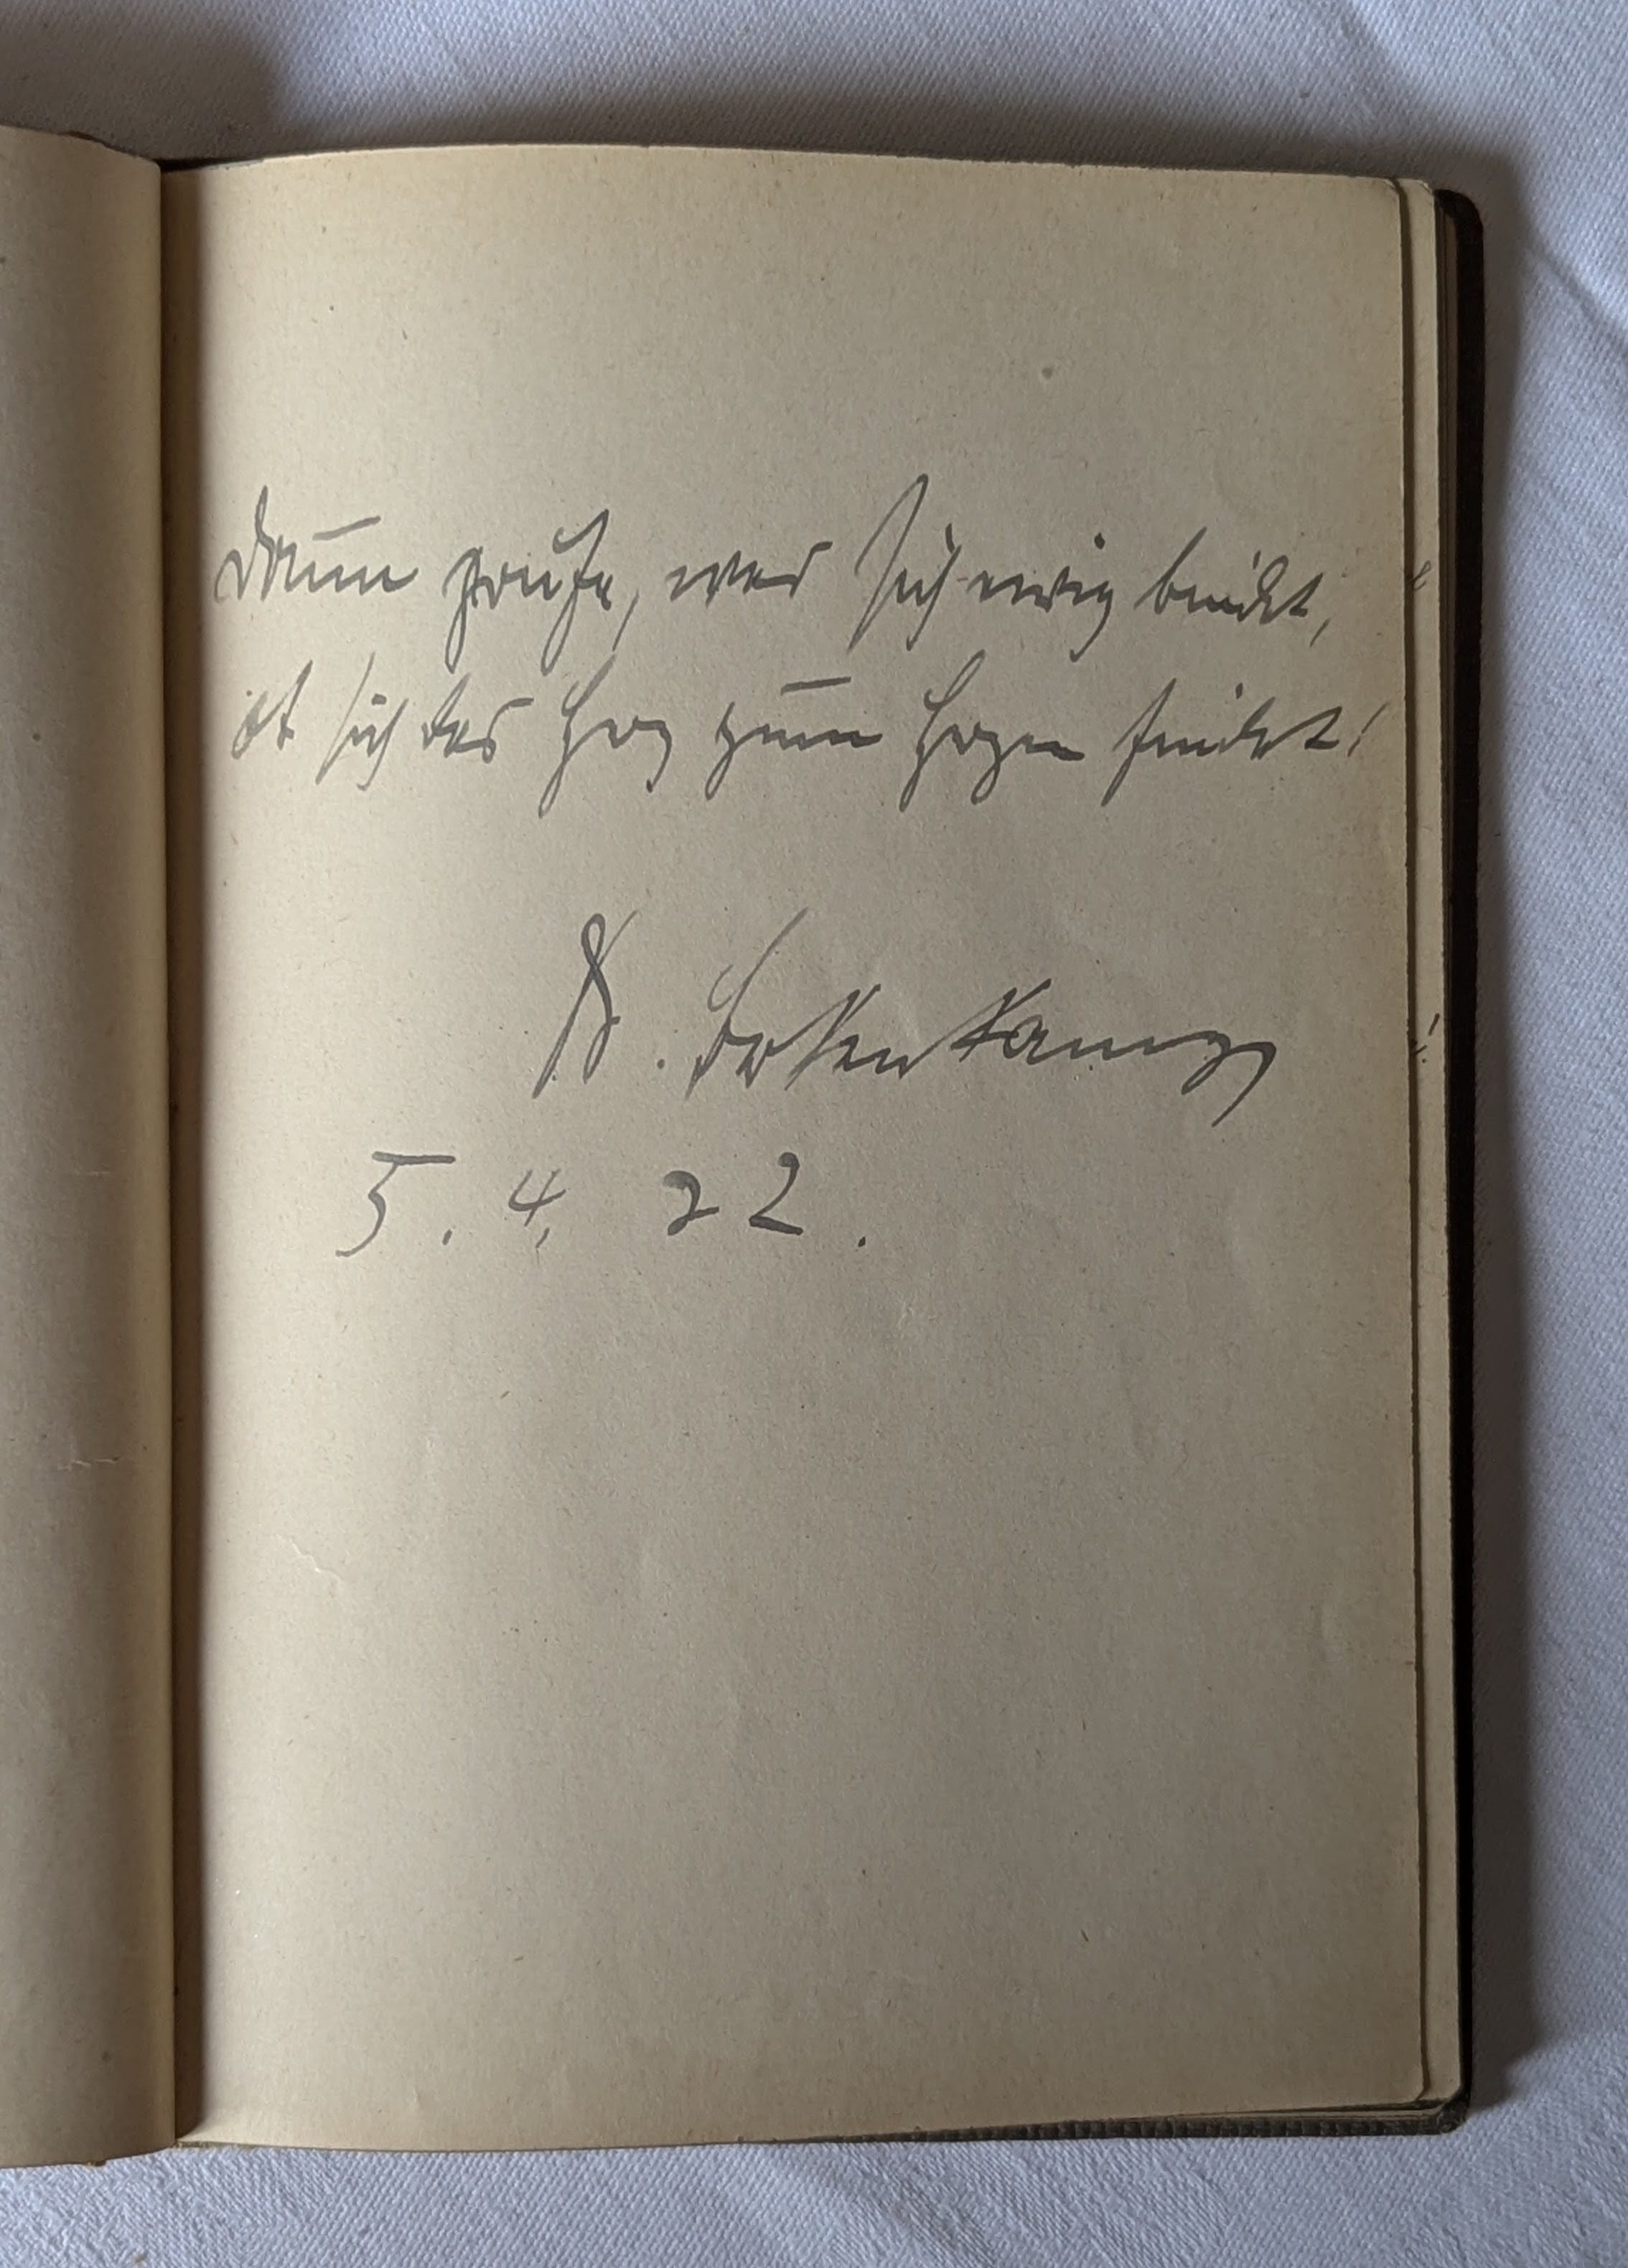 Drum prüfe, wer sich ewig bindet,
ob sich das Herz zum Herzen findet!
5. 4. 22.